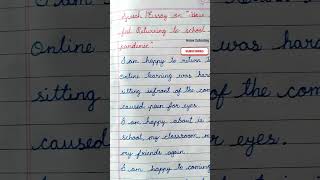 Speech/Essay on "How
feel Returning to school
pandemic".
SUBSCRIBE
I am happy to return to
Online learning was hard
sitting infront of the com
caused pain for eyes
I am happy about is
school, my classroom,
my friends again
I am happy to coming
I am
Online
was har
sitting
of the com
caused
for eyes.